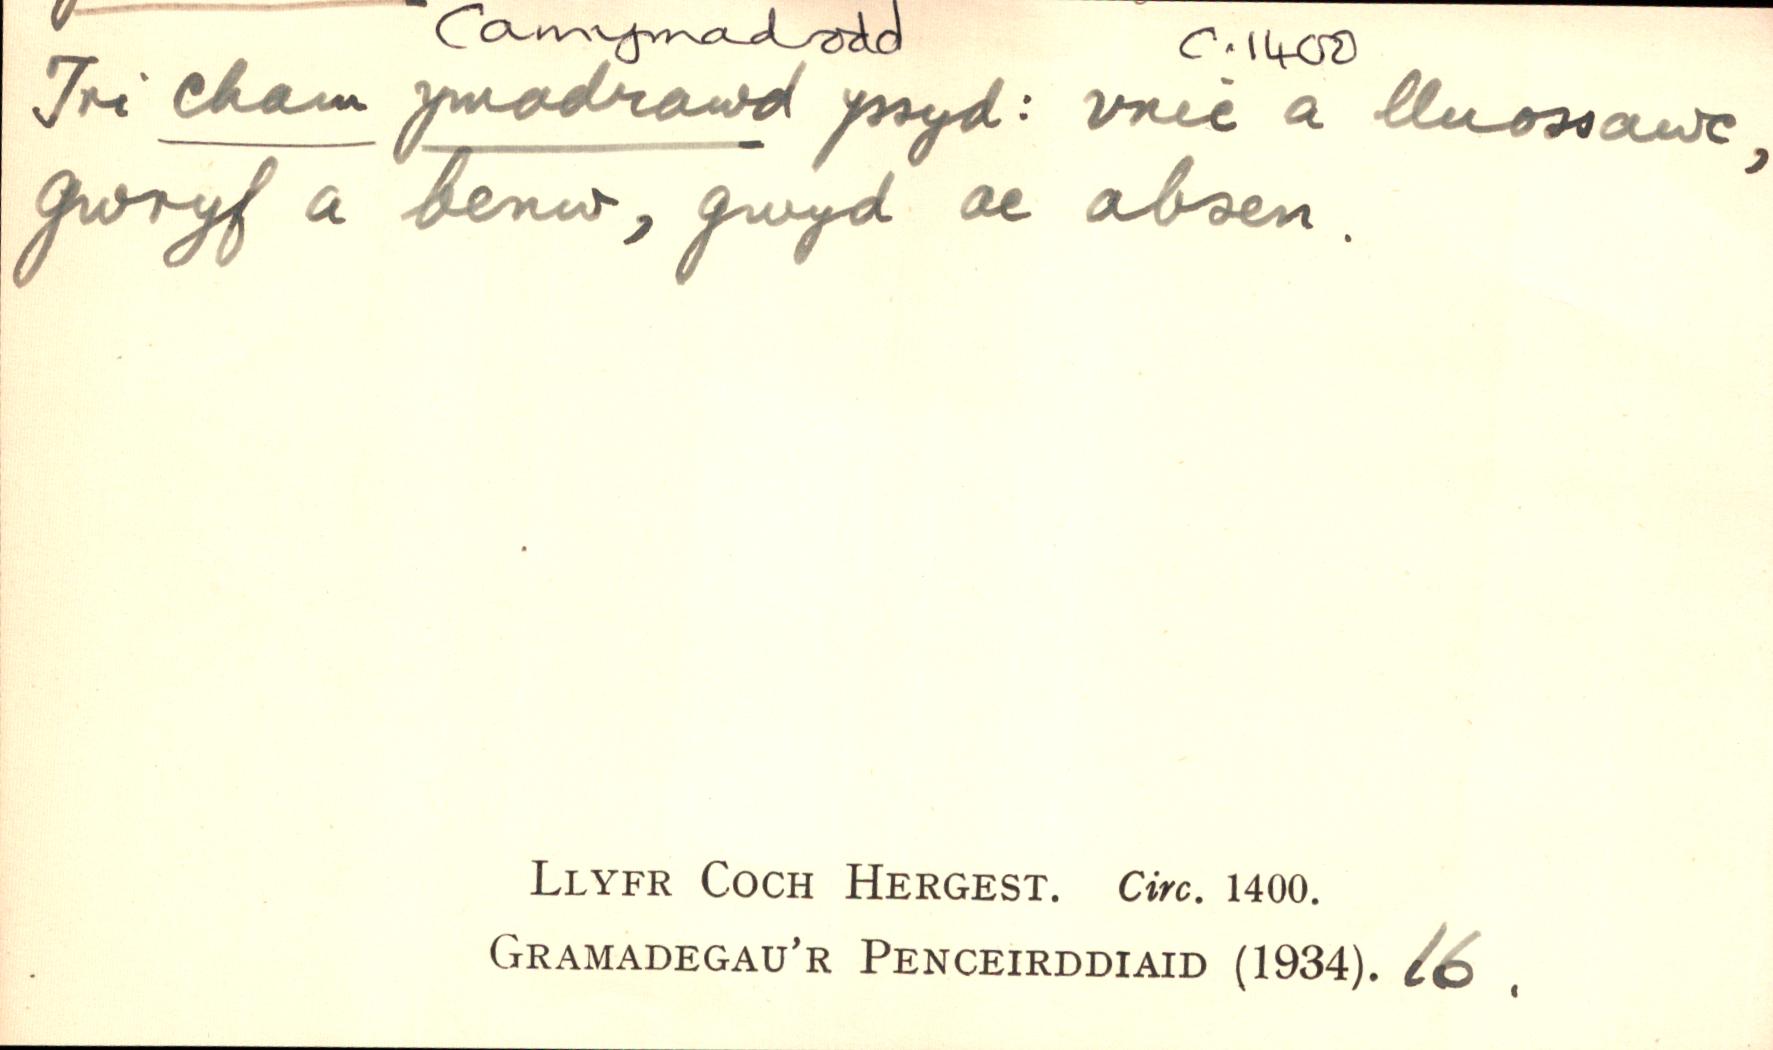 Camymadrodd c.1400
Tri cham ymadrawd yssyd: vnic a lluossawc,
gwryf a benw, gwyd ac absen.
LLYFR COCH HERGEST. Circ. 1400.
GRAMADEGAU'R PENCEIRDDIAID (1934). 16.